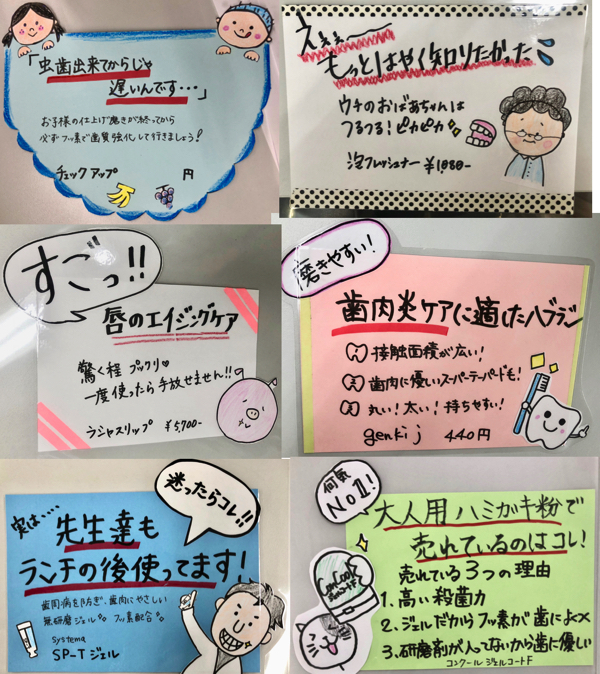 「虫歯出来てからじゃ
遅いんです…」
お子様の仕上げ磨きが終ってから
必ずフッ素で歯質強化して行きましょう!
チェックアップ 円
えぇぇ〜
もっとはやく知りたかった
ウチのおばあちゃんは
つるつる!ピカピカ
泡フレッシュナー ¥1,080-
すごっ!!
唇のエイジングケア
驚く程プックリ♡
一度使ったら手放せません!!
ラシャスリップ ¥5,700-
磨きやすい!
歯肉炎ケアに適したハブラシ
接触面積が広い!
歯肉に優しいスーパーテーパード毛!
丸い!太い!持ちやすい!
genki j 440円
迷ったらコレ!!
実は…
先生達も
ランチの後使ってます!
歯周病を防ぎ、歯肉にやさしい
無研磨ジェル フッ素配合
Systema
SP-Tジェル
何気
No.1!
大人用ハミガキ粉で
売れているのはコレ!
売れている3つの理由
1、高い殺菌力
2、ジェルだからフッ素が歯によく×
3、研磨剤が入ってないから歯に優しい
コンクール ジェルコートF
ConCool